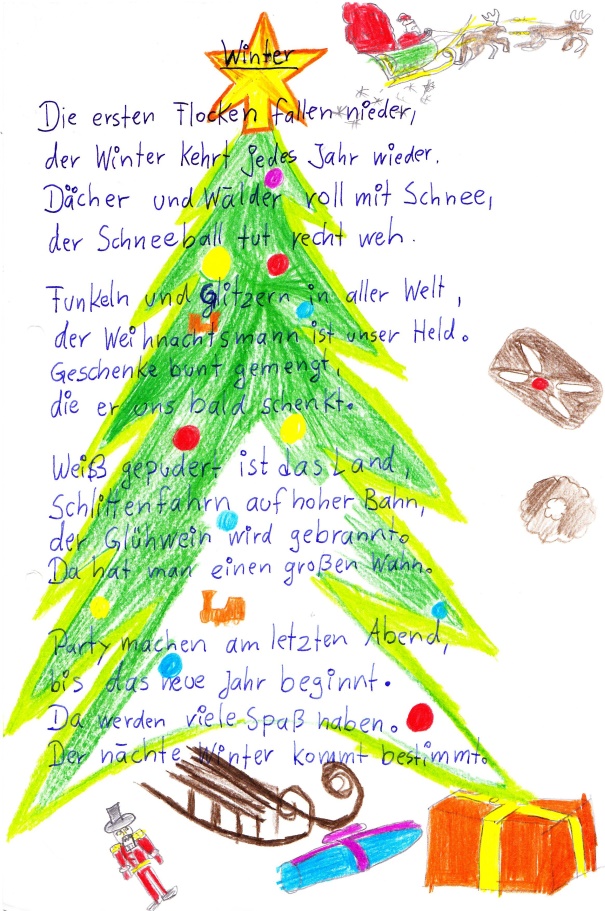 Winter
Die ersten Flocken fallen nieder,
der Winter kehrt jedes Jahr wieder.
Dächer und Wälder voll mit Schnee,
der Schneeball tut recht weh.
Funkeln und Glitzern in aller Welt,
der Weihnachtsmann ist unser Held.
Geschenke bunt gemengt,
die er uns bald schenkt.
Weiß gepudert ist das Land,
Schlittenfahrn auf hoher Bahn,
der Glühwein wird gebrannt.
Da hat man einen großen Wahn.
Party machen am letzten Abend,
bis das neue Jahr beginnt.
Da werden viele Spaß haben.
Der nächte Winter kommt bestimmt.